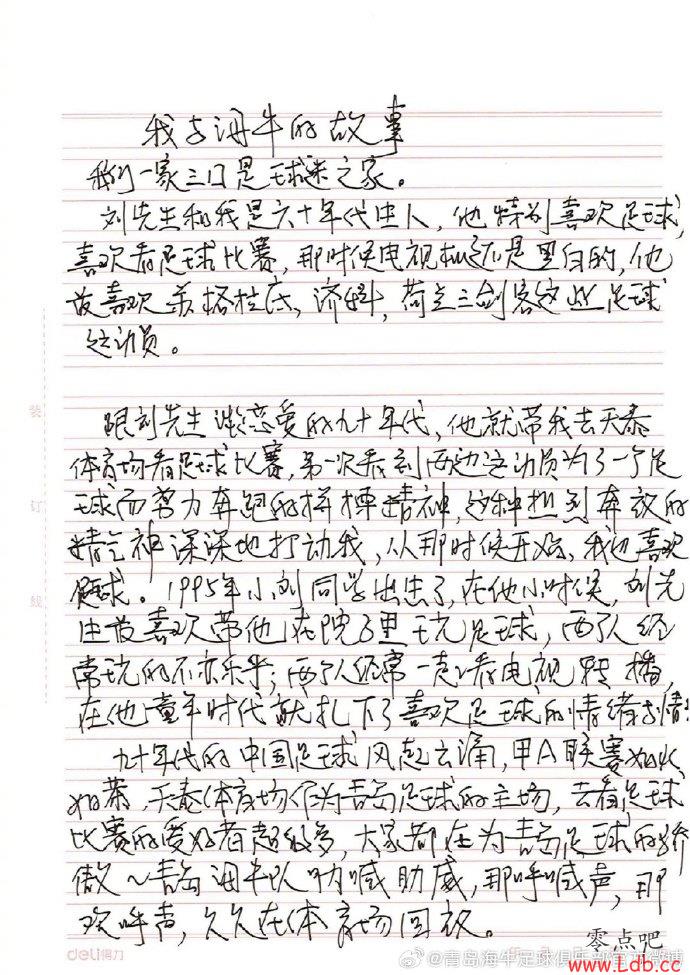 我与海牛的故事
我们一家三口是球迷之家。
刘先生和我是六十年代生人，他特别喜欢足球，
喜欢看足球比赛，那时候电视机还是黑白的，他
最喜欢苏格拉底，济科，荷兰三剑客这些足球
运动员。
跟刘先生谈恋爱的九十年代，他就带我去天泰
体育场看足球比赛，第一次看到两边运动员为了一个足
球而努力奔跑的拼搏精神，这种热烈奔放的
精气神深深地打动我，从那时候开始，我也喜欢
足球。1995年小刘同学出生了，在他小时候，刘先
生最喜欢带他在院子里玩足球，两个人经
常玩的不亦乐乎；两个人经常一起看电视转播，
在他童年时代就扎下了喜欢足球的情绪与情
九十年代的中国足球风起云涌，甲A联赛如火
如荼，天泰体育场作为青岛足球的主场，去看足球
比赛的爱好者超级多，大家都在为青岛足球的骄
傲～青岛海牛队呐喊助威，那呼喊声，那
欢呼声，久久在体育场回放。
装
订
线
deli得力
@青岛海牛足球俱乐部官方微博
零点吧
www.Ldb.cc